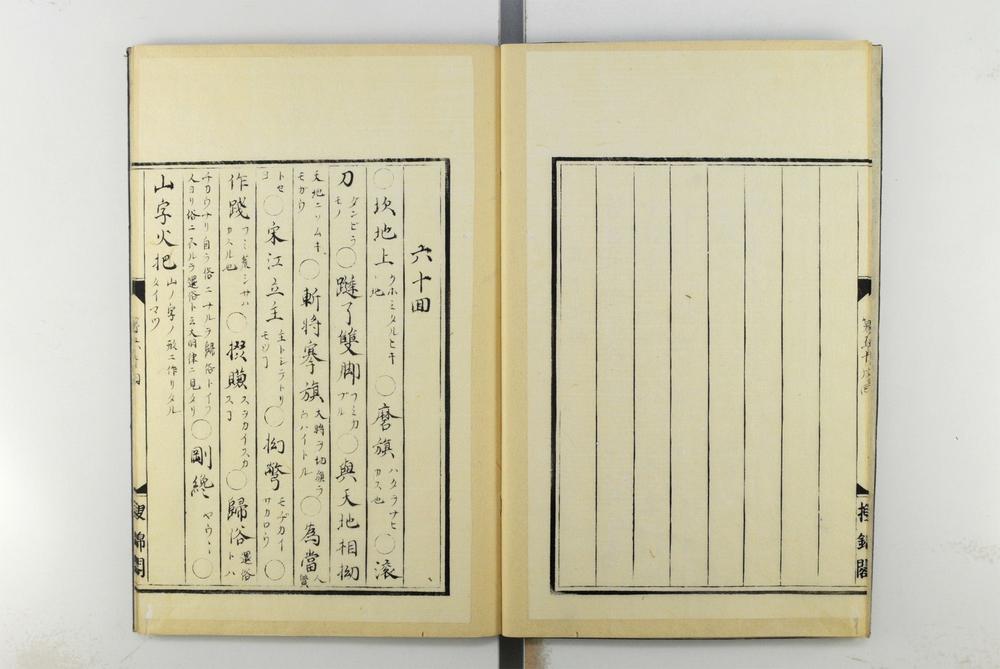 六十回
○坎地上 クホミタルヒキ地 ○磨旗 ハタヲナヒカス也 ○滾
刀 ダンビラモノ ○躂了雙脚 フミカブル ○與天地相拗
天地ニソムキモガウ ○斬将搴旗 大将ヲ切旗ヲウハイトル ○為當 人質
トセヨ ○宋江立主 主トシテトリモツコ ○拗彆 モヂカイサカロウ ○
作踐 フミ荒シサハカスル也 ○掇賺 スヲカイスカスコ ○歸俗 還俗トハ
チカウナリ自ラ俗ニナルヲ歸俗トイフ人ヨリ俗ニスルヲ還俗ト云大明律ニ見タリ ○剛纔 ヤウヽヽ ○
山字火把 山ノ字ノ形ニ作リタルタイマツ
六十回
錦閣